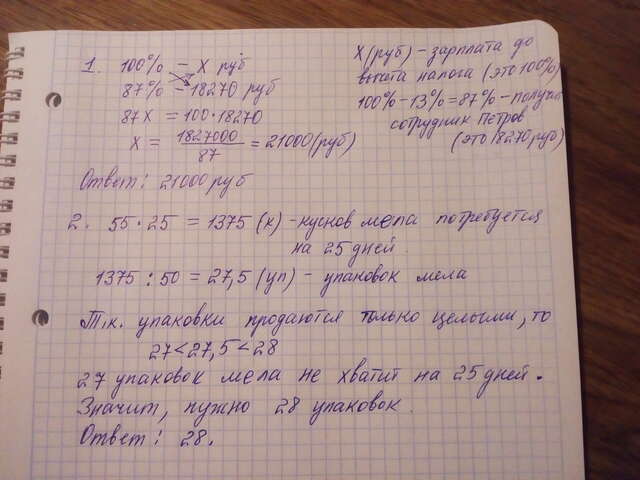 1. 100% – x руб
87% – 18270 руб
87x = 100·18270
x = 1827000/87 = 21000 (руб)
Ответ: 21000 руб
X (руб) – зарплата до
вычета налога (это 100%)
100% – 13% = 87% – получил
сотрудник Петров
(это 18270 руб)
2. 55·25 = 1375 (к) – кусков мела потребуется
на 25 дней.
1375 : 50 = 27,5 (уп) – упаковок мела
Т.к. упаковки продаются только целыми, то
27 < 27,5 < 28
27 упаковок мела не хватит на 25 дней.
Значит, нужно 28 упаковок.
Ответ: 28.